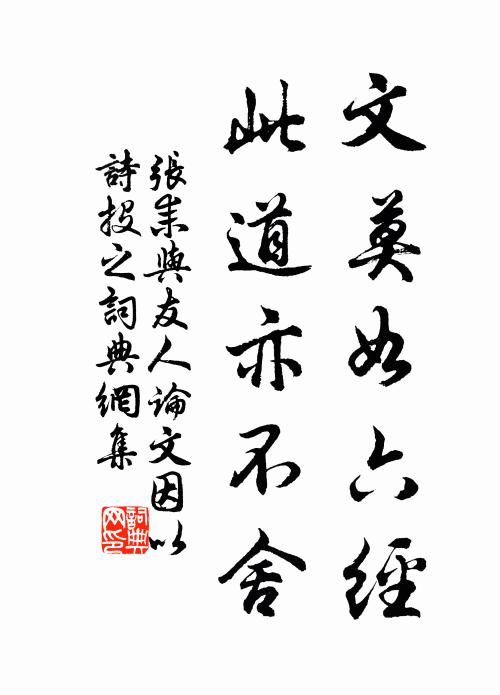 文莫如六經
此道亦不舍
張耒與友人論文因以
詩投之詞典網集
詞典網印